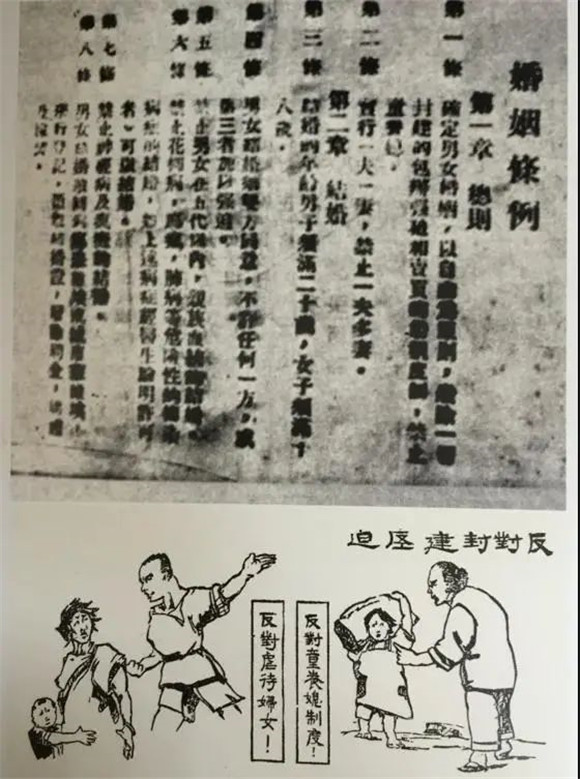 婚姻條例
第一章 總則
第一條 確定男女婚姻，以自由為原則，廢除一切
封建的包辦强迫和買賣的婚姻制度，禁止
童養媳。
第二條 實行一夫一妻，禁止一夫多妻。
第二章 結婚
第三條 結婚的年齡男子須滿二十歲，女子須滿十
八歲。
第四條 男女結婚須雙方同意，不許任何一方，或
第三者加以强迫。
第五條 禁止男女在五代以內，親族血統的結婚。
第六條 禁止花柳病，肺病等危險性的傳染
病症的結婚，上述病症經醫生驗明許可
者，可以結婚。
第七條 禁止神經病及瘋癱的結婚。
第八條 男女結婚須同到
舉行登記，領取結婚證，廢除聘金，聘禮
及嫁妝。
反對封建压迫
反對童養媳制度！
反對虐待婦女！